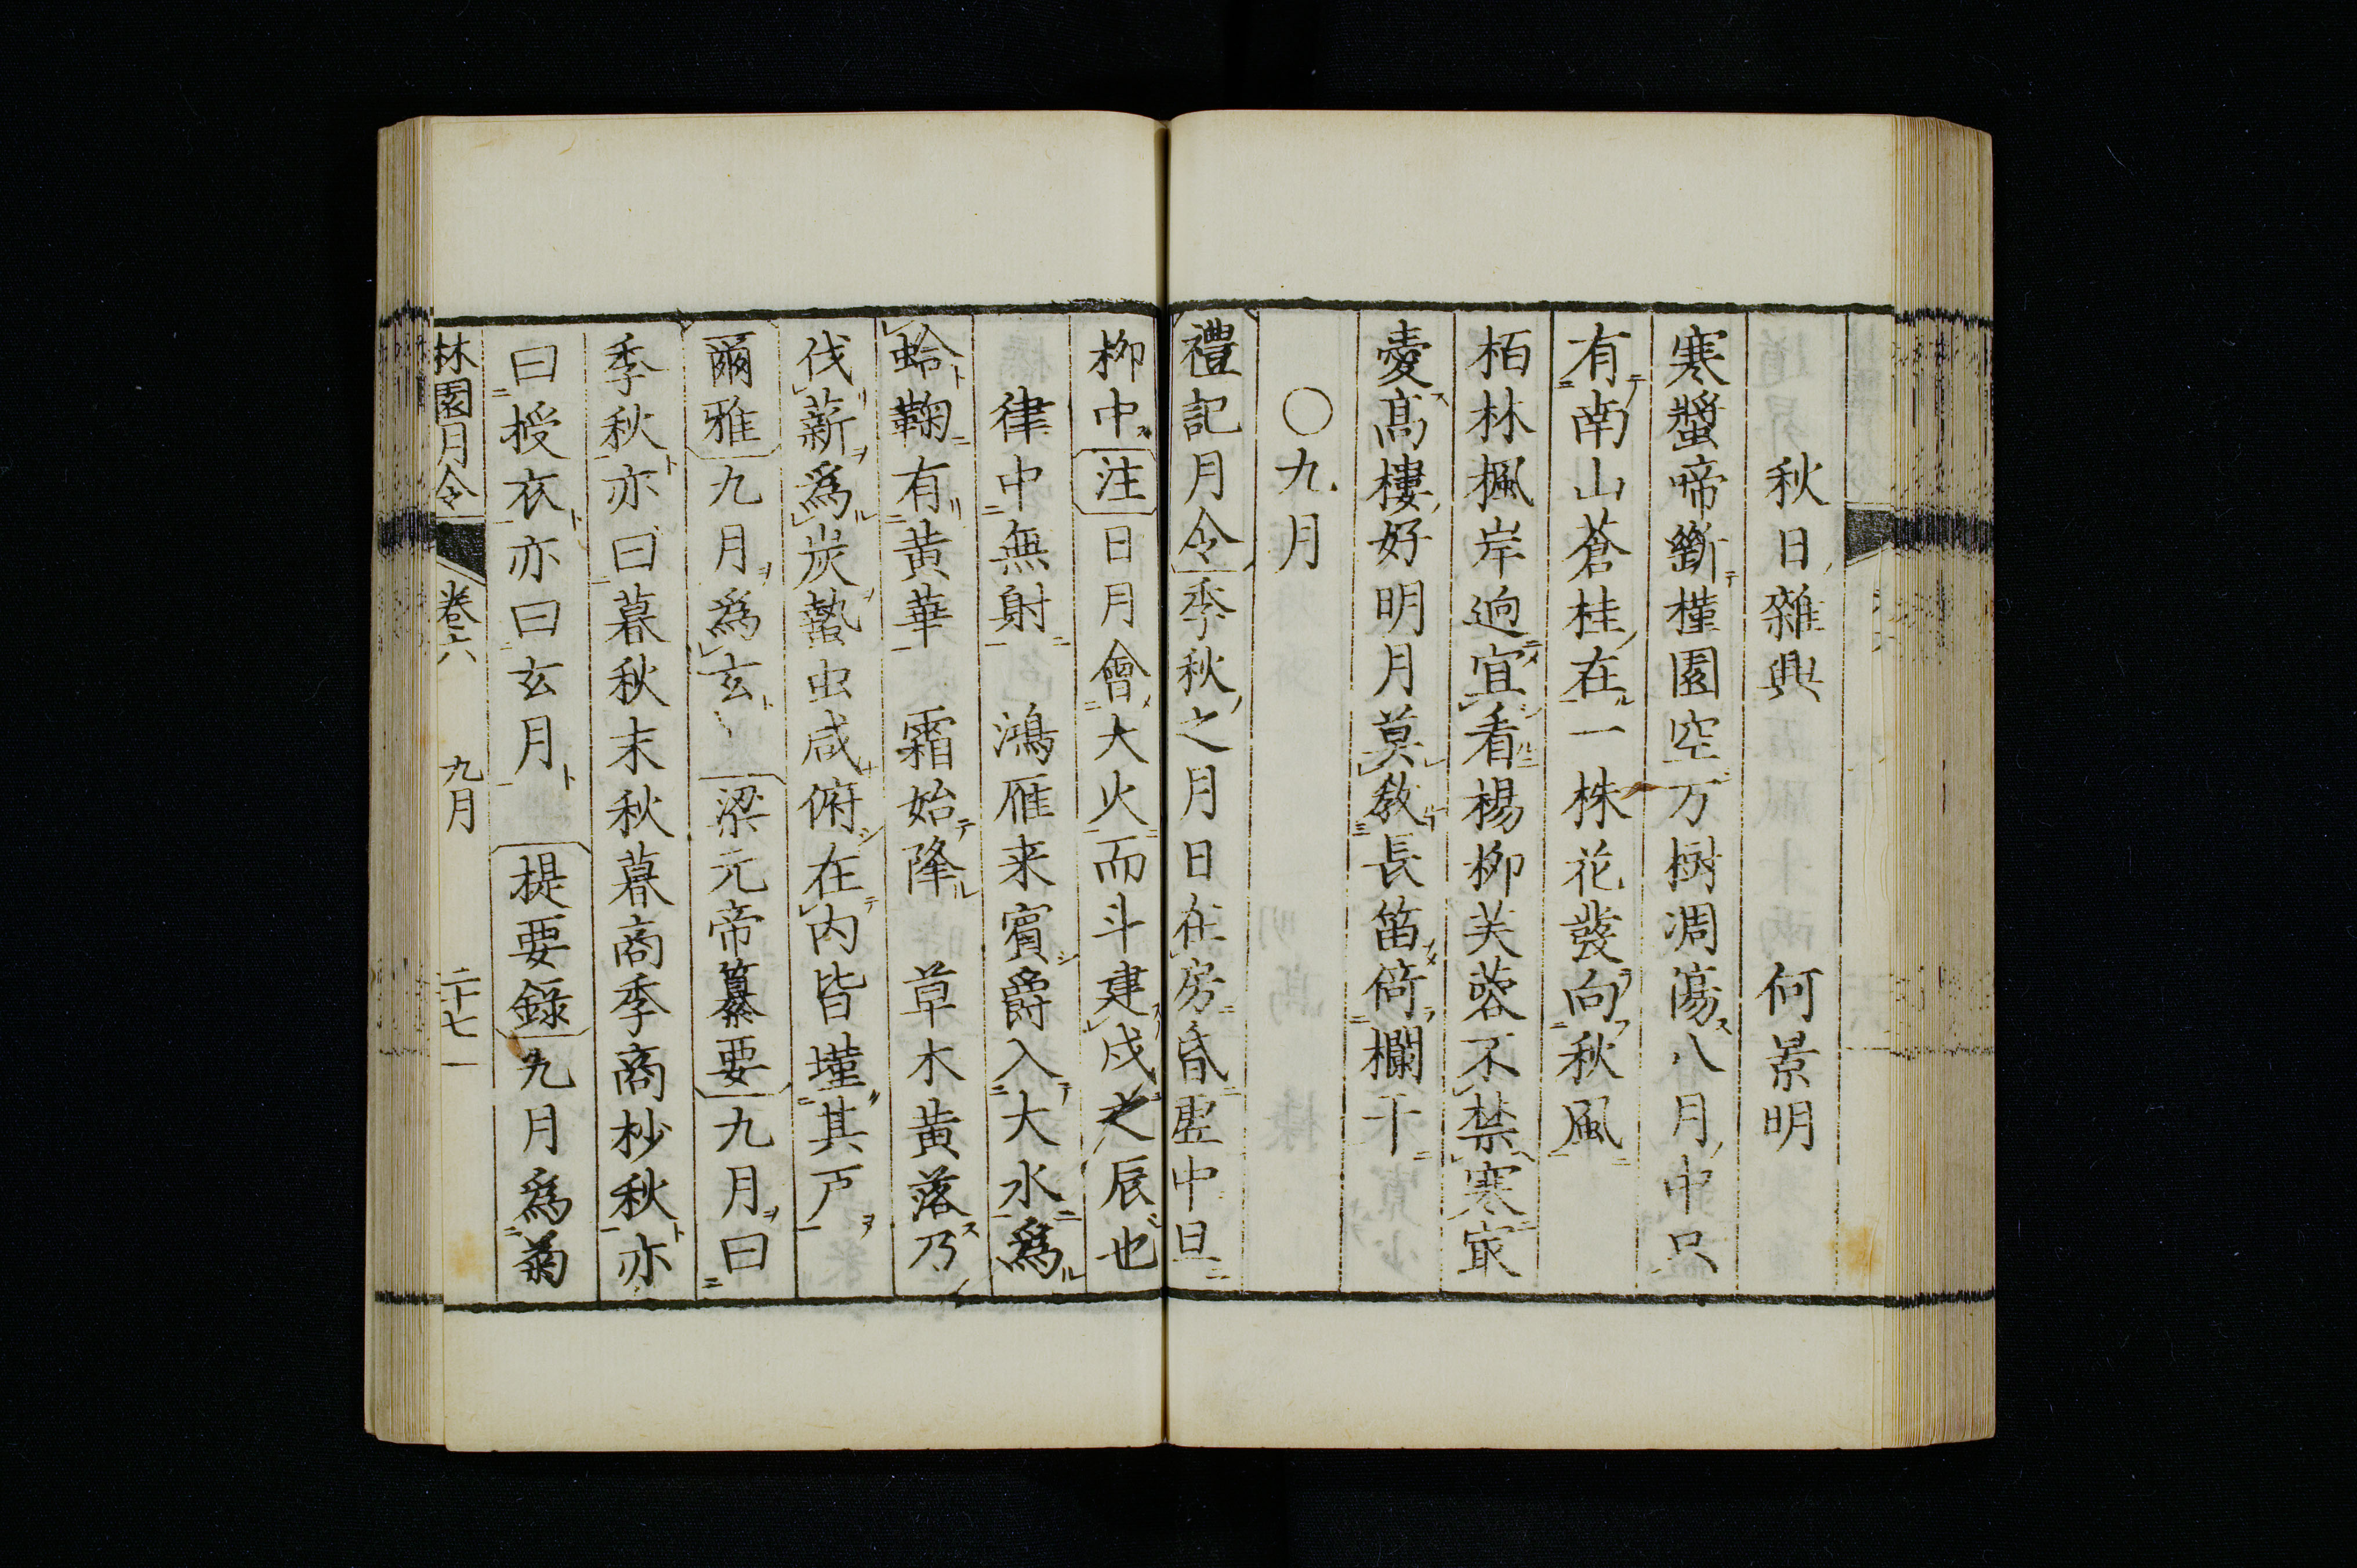 秋日雜興　何景明
寒螿啼斷槿園空万樹凋落八月中只
有南山蒼桂在一株花發向秋風
栢林楓岸逈宜看楊柳芙蓉不禁寒冣
愛髙樓好明月莫敎長笛倚欄干
○九月
禮記月令季秋之月日在房昏虚中旦
柳中注日月會大火而斗建戌之辰也
律中無射　鴻雁来賓爵入大水爲
蛤鞠有黄華　霜始降　草木黄落乃
伐薪爲炭蟄虫咸俯在内皆墐其戸
爾雅九月爲玄　梁元帝纂要九月曰
季秋亦曰暮秋末秋暮商季商杪秋亦
曰授衣亦曰玄月　提要錄九月爲菊
林園月令　卷六　九月　二十七